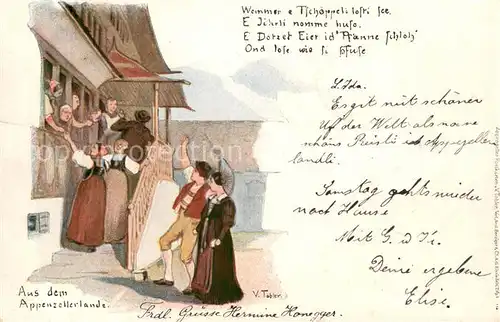 Wemmer e Tschöppeli losti see.
E Jöhrli nomme huso.
E Dotzet Eier id' Pfanne schloh'
Ond lose wie si pfuse
L. Ida.
Es git nüt schöner
Uf der Welt als
Appezeller
landli.
Samstag gehts wieder
nach Hause
Mit G. d K.
Deine ergebene
Elise.
Aus dem
Appenzellerlande.
V. Tobler.
Frdl. Grüsse Hermine Honegger.